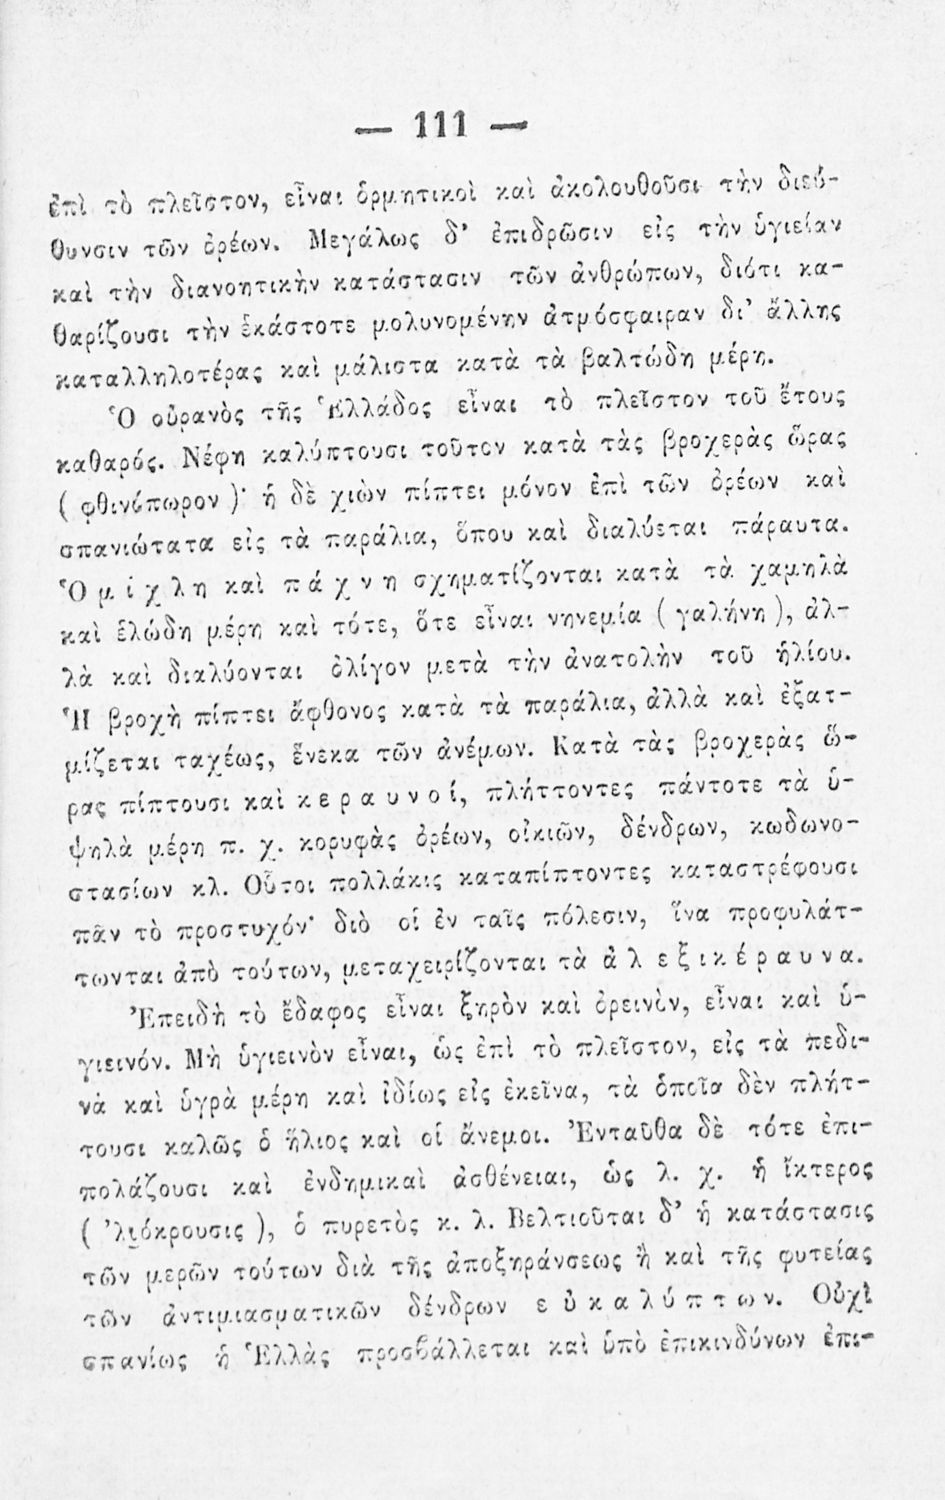 — 111 —
ἐπὶ τὸ πλεῖστον, εἶναι ὁρμητικοὶ καὶ ἀκολουθοῦσι τὴν διεύ-
θυνσιν τῶν ὀρέων. Μεγάλως δ’ ἐπιδρῶσιν εἰς τὴν ὑγιείαν
καὶ τὴν διανοητικὴν κατάστασιν τῶν ἀνθρώπων, διότι κα-
θαρίζουσι τὴν ἑκάστοτε μολυνομένην ἀτμόσφαιραν δι’ ἄλλης
καταλληλοτέρας καὶ μάλιστα κατὰ τὰ βαλτώδη μέρη.
Ὁ οὐρανὸς τῆς Ἑλλάδος εἶναι τὸ πλεῖστον τοῦ ἔτους
καθαρός. Νέφη καλύπτουσι τοῦτον κατὰ τὰς βροχερὰς ὥρας
( φθινόπωρον )· ἡ δὲ χιὼν πίπτει μόνον ἐπὶ τῶν ὀρέων καὶ
σπανιώτατα εἰς τὰ παράλια, ὅπου καὶ διαλύεται πάραυτα.
Ὁ μ ί χ λ η καὶ π ά χ ν η σχηματίζονται κατὰ τὰ χαμηλὰ
καὶ ἑλώδη μέρη καὶ τότε, ὅτε εἶναι νηνεμία ( γαλήνη ), ἀλ-
λὰ καὶ διαλύονται ὀλίγον μετὰ τὴν ἀνατολὴν τοῦ ἡλίου.
Ἡ βροχὴ πίπτει ἄφθονος κατὰ τὰ παράλια, ἀλλὰ καὶ ἐξατ-
μίζεται ταχέως, ἕνεκα τῶν ἀνέμων. Κατὰ τὰς βροχερὰς ὥ-
ρας πίπτουσι καὶ κ ε ρ α υ ν ο ί, πλήττοντες πάντοτε τὰ ὑ-
ψηλὰ μέρη π. χ. κορυφὰς ὀρέων, οἰκιῶν, δένδρων, κωδωνο-
στασίων κλ. Οὗτοι πολλάκις καταπίπτοντες καταστρέφουσι
πᾶν τὸ προστυχόν· διὸ οἱ ἐν ταῖς πόλεσιν, ἵνα προφυλάτ-
τωνται ἀπὸ τούτων, μεταχειρίζονται τὰ ἀ λ ε ξ ι κ έ ρ α υ ν α.
Ἐπειδὴ τὸ ἔδαφος εἶναι ξηρὸν καὶ ὀρεινὸν, εἶναι καὶ ὑ-
γιεινόν. Μὴ ὑγιεινὸν εἶναι, ὡς ἐπὶ τὸ πλεῖστον, εἰς τὰ πεδι-
νὰ καὶ ὑγρὰ μέρη καὶ ἰδίως εἰς ἐκεῖνα, τὰ ὁποῖα δὲν πλήτ-
τουσι καλῶς ὁ ἥλιος καὶ οἱ ἄνεμοι. Ἐνταῦθα δὲ τότε ἐπι-
πολάζουσι καὶ ἐνδημικαὶ ἀσθένειαι, ὡς λ. χ. ἡ ἴκτερος
( ’λιόκρουσις ), ὁ πυρετὸς κ. λ. Βελτιοῦται δ’ ἡ κατάστασις
τῶν μερῶν τούτων διὰ τῆς ἀποξηράνσεως ἢ καὶ τῆς φυτείας
τῶν ἀντιμιασματικῶν δένδρων ε ὐ κ α λ ύ π τ ω ν. Οὐχὶ
σπανίως ἡ Ἑλλὰς προσβάλλεται καὶ ὑπὸ ἐπικινδύνων ἐπι-